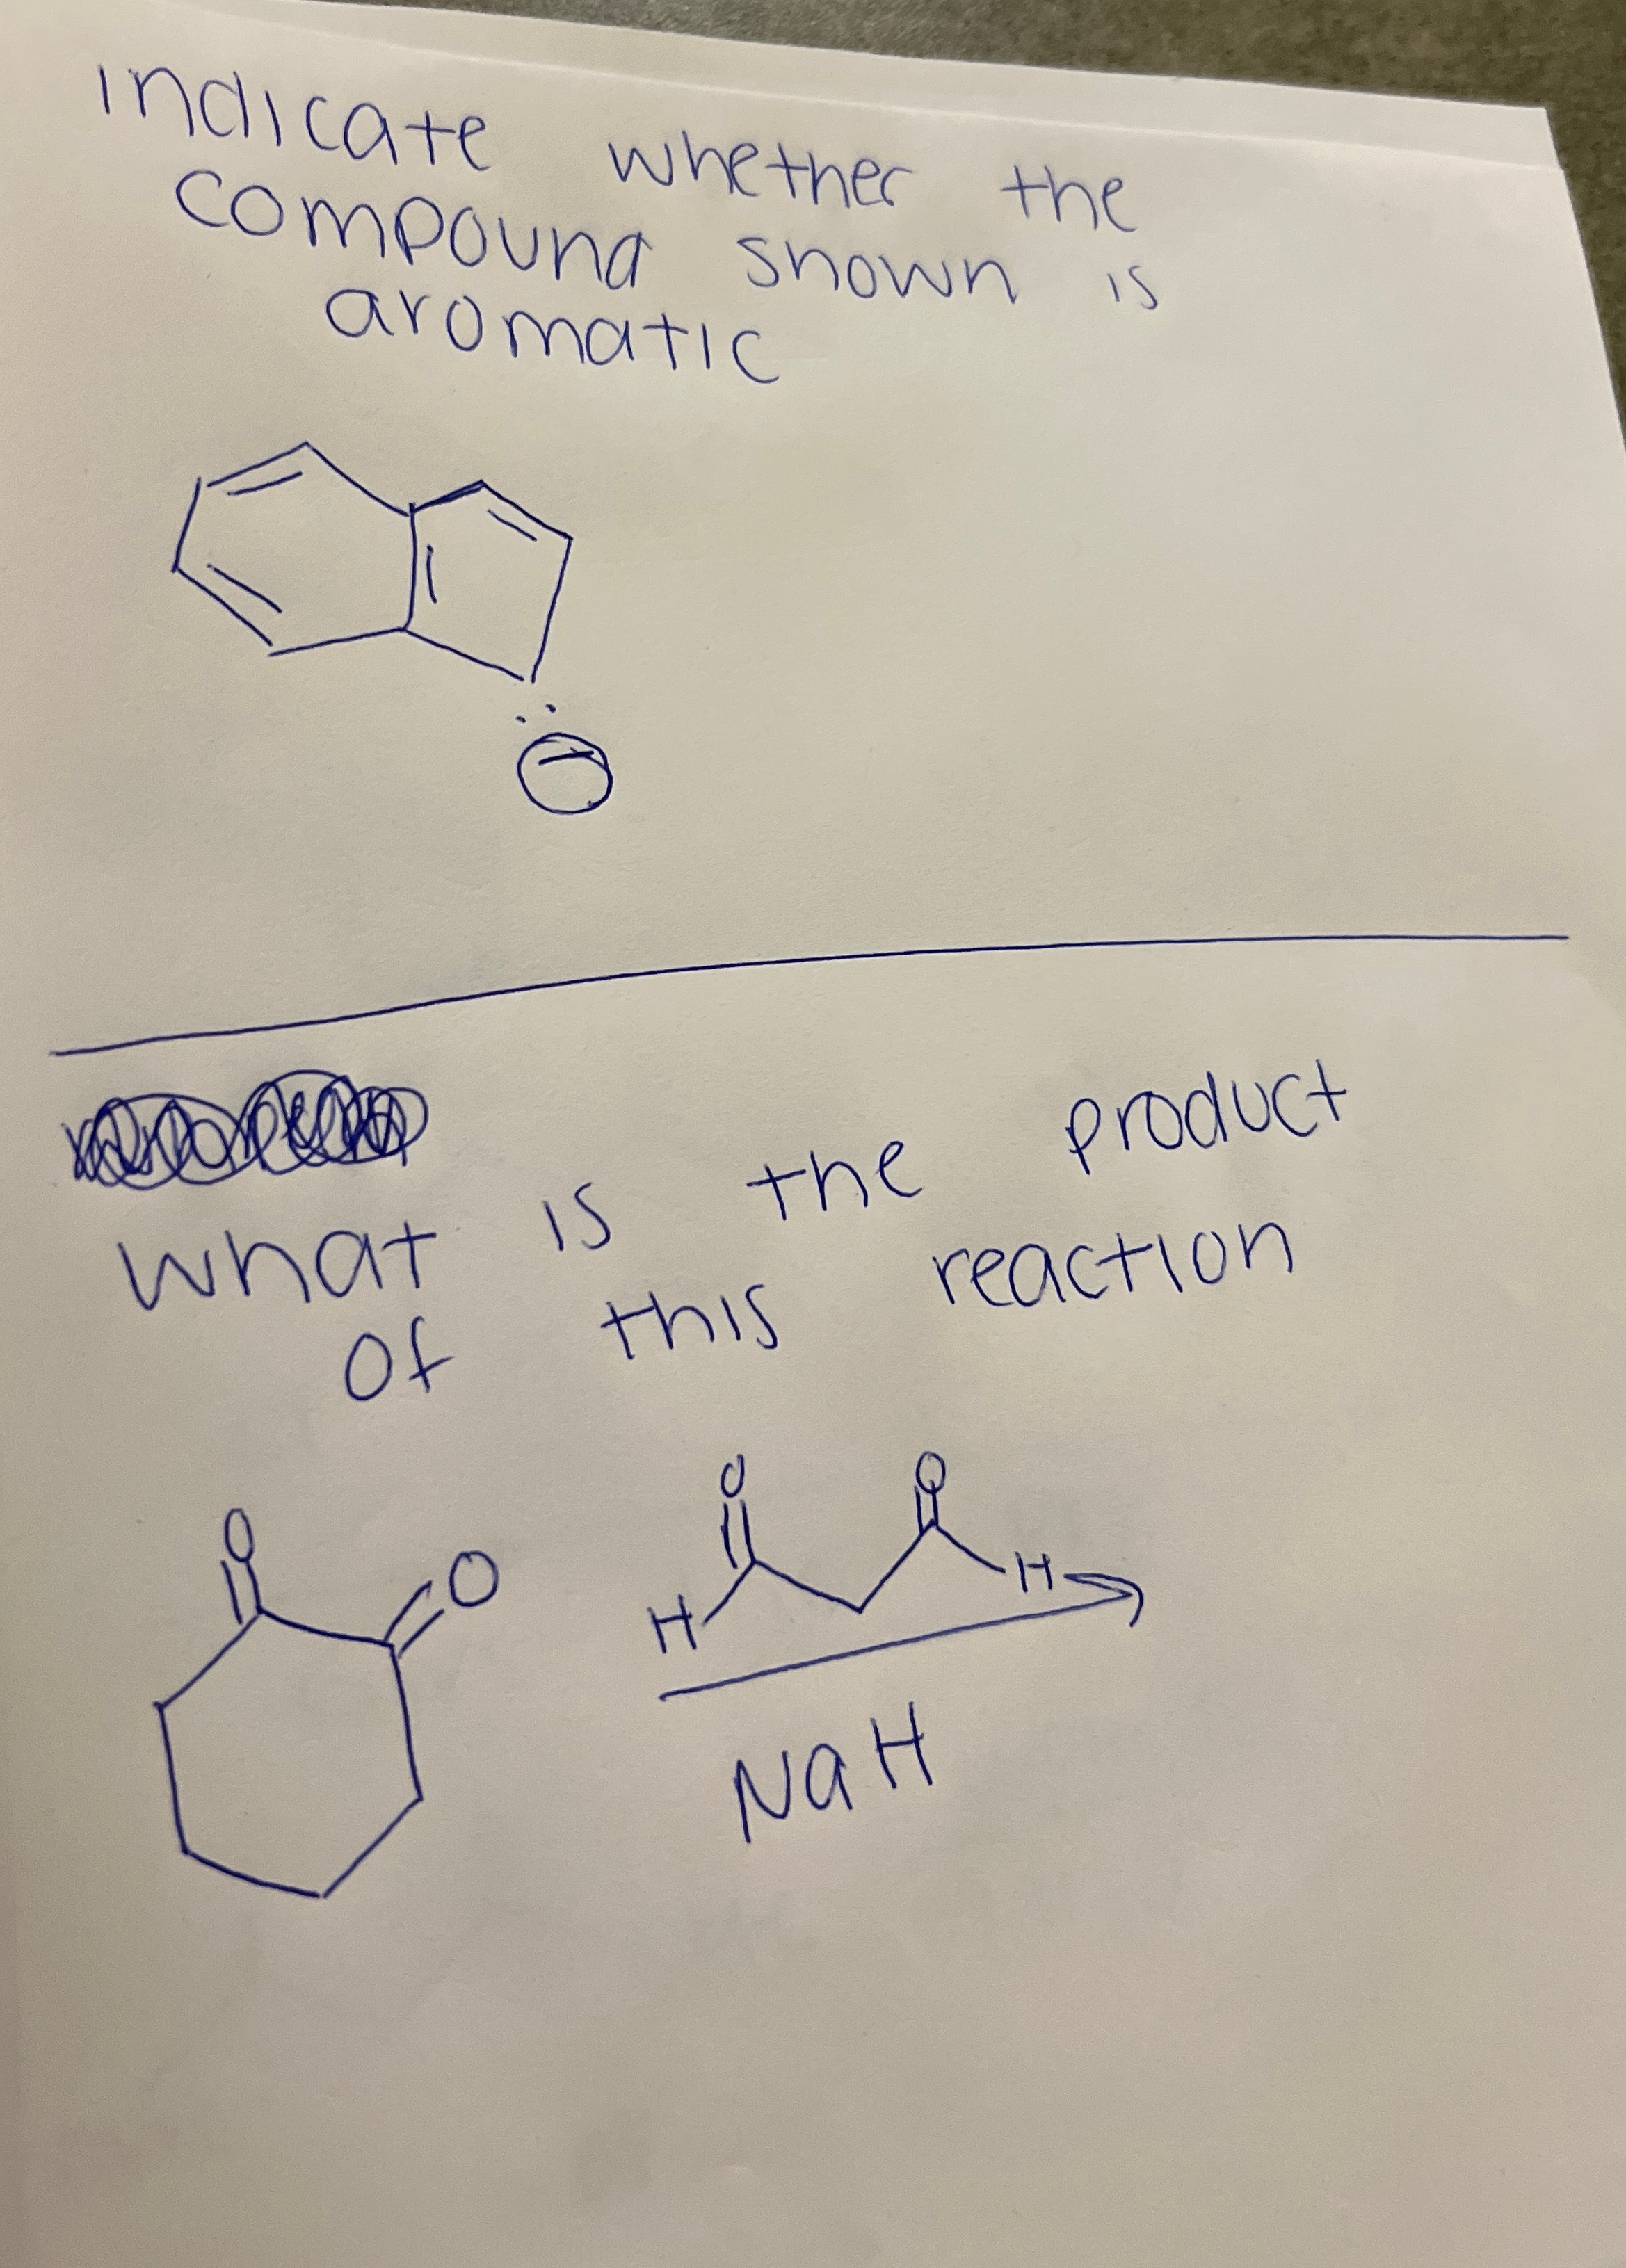 indicate whether the
compound shown is
aromatic
:
⊖
what is the product
of this reaction
O
O
O
O
H
H
NaH